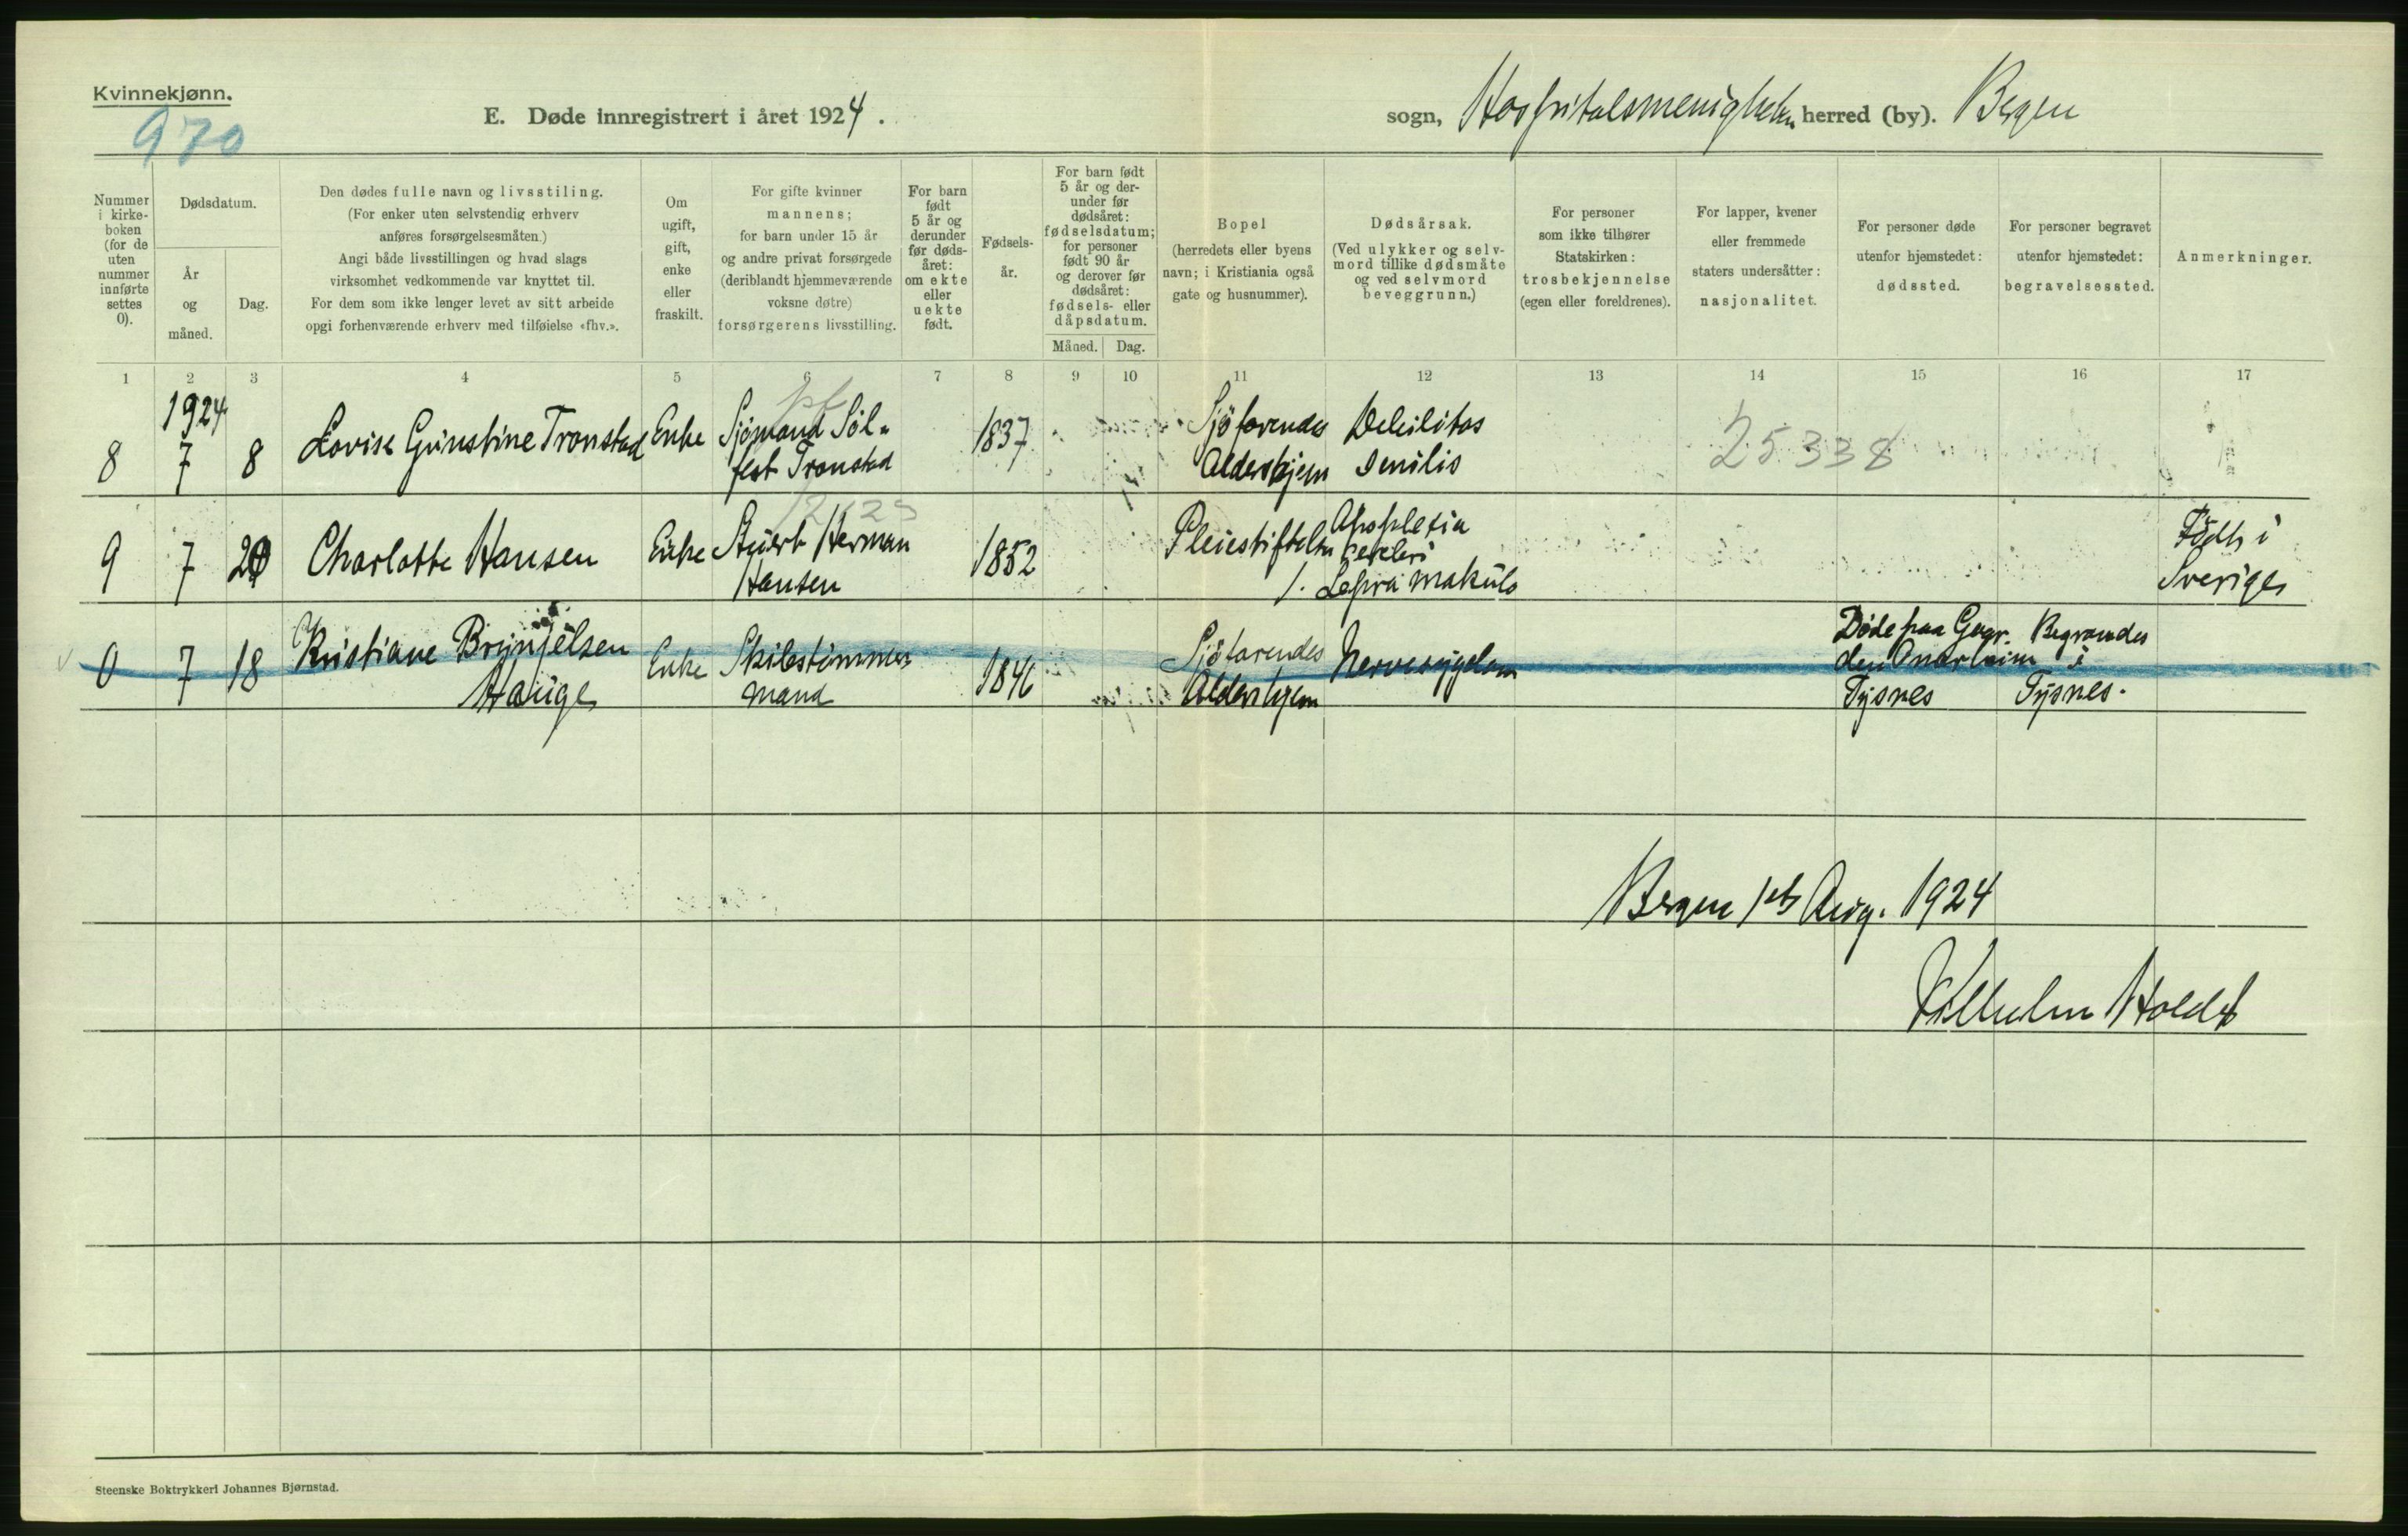 Kvinnekjønn.
970
E. Døde innregistrert i året 1924.
sogn, Hospitalsmenigheten herred (by). Bergen
Nummer i kirke- boken (for de uten nummer innførte settes 0).
Dødsdatum.
År og måned.
Dag.
Den dødes fulle navn og livsstiling.
(For enker uten selvstendig erhverv
anføres forsørgelsesmåten.)
Angi både livsstillingen og hvad slags
virksomhet vedkommende var knyttet til.
For dem som ikke lenger levet av sitt arbeide
opgi forhenværende erhverv med tilføielse «fhv.».
Om ugift, gift, enke eller fraskilt.
For gifte kvinner
mannens;
for barn under 15 år
og andre privat forsørgede
(deriblandt hjemmeværende
voksne døtre)
forsørgerens livsstilling.
For barn født 5 år og derunder før døds- året: om ekte eller uekte født.
Fødsels- år.
For barn født 5 år og der- under før dødsåret: fødselsdatum; for personer født 90 år og derover før dødsåret: fødsels- eller dåpsdatum.
Måned. Dag.
Bopel
(herredets eller byens
navn; i Kristiania også
gate og husnummer).
Dødsårsak.
(Ved ulykker og selv-
mord tillike dødsmåte
og ved selvmord
beveggrunn.)
For personer
som ikke tilhører
Statskirken:
trosbekjennelse
(egen eller foreldrenes).
For lapper, kvener
eller fremmede
staters undersåtter:
nasjonalitet.
For personer døde
utenfor hjemstedet:
dødssted.
For personer begravet
utenfor hjemstedet:
begravelsessted.
Anmerkninger.
1 2 3 4 5 6 7 8 9 10 11 12 13 14 15 16 17
1924
8 7 8 Lovise Gunstine Tronstad Enke Sjömand Söl-
fest Tronstad 1837 Sjöfarendes
Aldershjem Debilitas
senilis 25338
9 7 20 Charlotte Hansen Enke Stuert Herman
Hansen 1852 Pleiestiftelsen
1. Apoplexia
cerebri
Lepra makulo Födt i
Sverige
0 7 18 Kristiane Brynjelsen
Hauge Enke Skibstömmer
mand 1846 Sjöfarendes
Aldershjem Nervesygdom Döde paa Gaar-
den Onarheim
Tysnes Begravedes
i
Tysnes.
Bergen 1st Aug. 1924
Vilhelm Holdt
Steenske Boktrykkeri Johannes Bjørnstad.